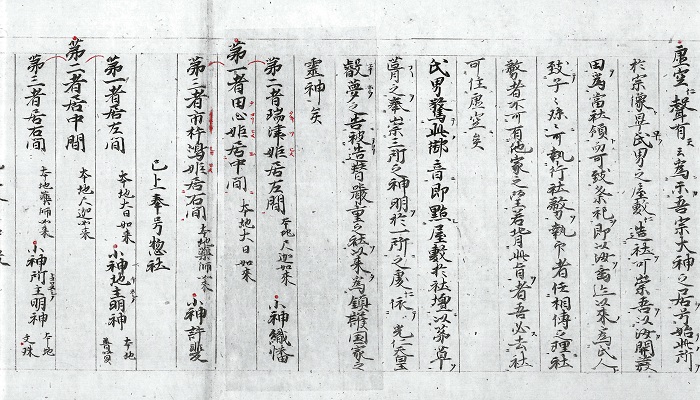 虚空ニ聲有云為示吾宗大神之居号始此所
於宗像早氏男之屋敷ニ造社可崇吾以汝開發
田為當社領而可致祭祀即以汝
子之孫可執行社務執印者任相傳之理社
務者不可有他家之望若背此旨者吾必去社
可住虚空矣
氏男驚此御音即點屋敷於社壇以茅草
葺之奉崇三所之神明於一所之處ニ依光仁天皇
叡夢之告被造替嚴重之社以来為鎮護国家之
靈神矣
第二者瑞津姫居左間 本地尺迦如来 小神織幡
第一者田心姫居中間 本地大日如来
第三者市杵嶋姫居右間 本地藥師如来 小神許斐
已上奉号惣社
第一者居左間 本地大日如来 小神地主明神 本地普賢
第二者居中間 本地尺迦如来
第三者居右間 本地藥師如来 小神所主明神 本地文珠